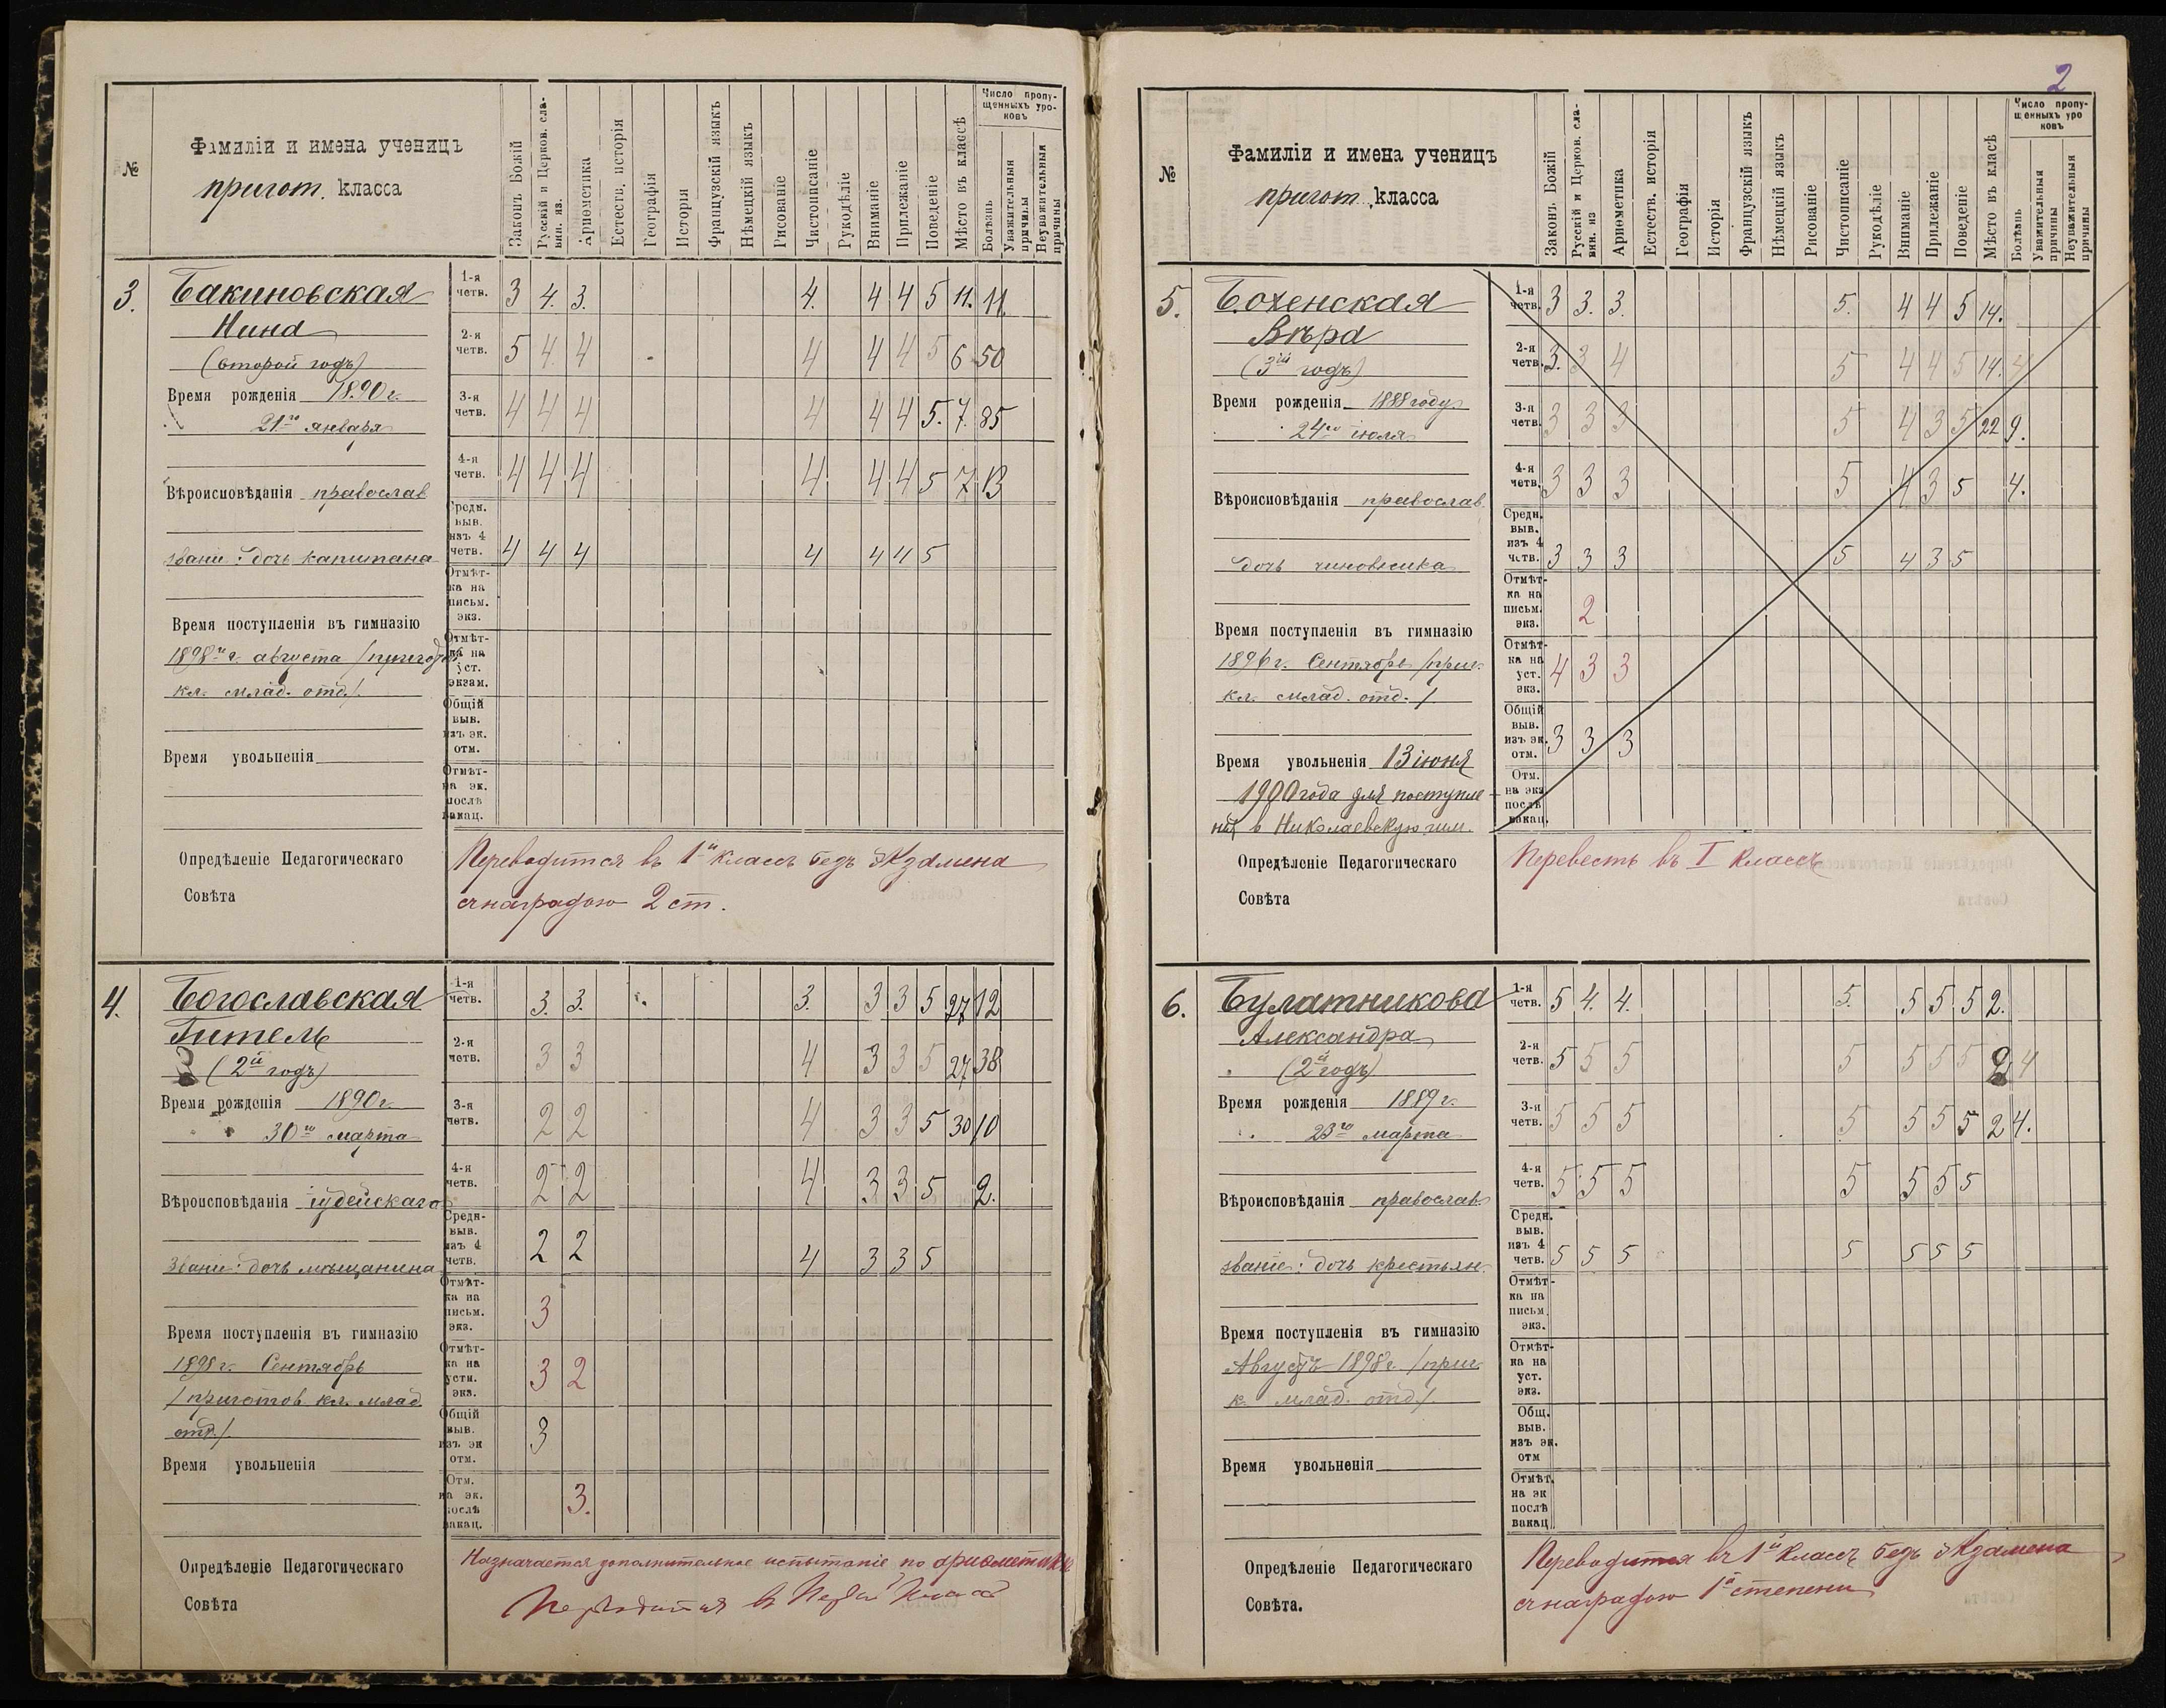 №
Фамиліи и имена ученицъ
пригот. класса
Законъ Божій
Русскій и Церков. сла-
вян. яз.
Ариѳметика
Естеств. исторія
Географія
Исторія
Французскій языкъ
Нѣмецкій языкъ
Рисованіе
Чистописаніе
Рукодѣліе
Вниманіе
Прилежаніе
Поведеніе
Мѣсто въ классѣ
Число пропу-
щенныхъ уро-
ковъ
Болѣзнь
Уважительныя
причины
Неуважительныя
причины
3.
Бакиновская
Нина
(второй годъ)
Время рожденія 1890 г.
21го января
Вѣроисповѣданія православ
званіе: дочь капитана
Время поступленія въ гимназію
1898го г. августа
кл. млад. отд./.
Время увольненія
1-я четв. 3 4. 3. 4. 4 4 5 11. 11.
2-я четв. 5 4 4 4 4 4 5 6 50
3-я четв. 4 4 4 4 4 4 5. 7. 85
4-я четв. 4 4 4 4 4 4 5 7 13
Средн. выв. изъ 4 четв. 4 4 4 4 4 4 5
Отмѣт-ка на письм. экз.
Отмѣт-ка на уст. экзам.
Общій выв. изъ эк. отм.
Отмѣт-на эк. послѣ вакац.
Опредѣленіе Педагогическаго
Совѣта
Переводится въ 1й классъ безъ экзамена
съ наградою 2 ст.
4.
Богославская
Гитель
(2й годъ)
Время рожденія 1890 г.
30го марта
Вѣроисповѣданія іудейскаго
званіе: дочь мѣщанина
Время поступленія въ гимназію
1898 г. Сентябрь
/приготов. кл. млад.
отд./.
Время увольненія
1-я четв. 3. 3. 3. 3 3 5 27 12
2-я четв. 3 3 4 3 3 5 27 38
3-я четв. 2 2 4 3 3 5 30 10
4-я четв. 2 2 4 3 3 5 2.
Средн- выв. изъ 4 четв. 2 2 4 3 3 5
Отмѣт-ка на письм. экз. 3
Отмѣт-ка на устн. экз. 3 2
Общій выв. изъ эк отм. 3
Отм. на эк. послѣ вакац. 3.
Опредѣленіе Педагогическаго
Совѣта
Назначается дополнительное испытаніе по ариѳметикѣ
Переводится въ Первый классъ
2
№
Фамиліи и имена ученицъ
пригот. класса
Законъ Божій
Русскій и Церков. сла-
вян. яз
Ариѳметика
Естеств. исторія
Географія
Исторія
Французскій языкъ
Нѣмецкій языкъ
Рисованіе
Чистописаніе
Рукодѣліе
Вниманіе
Прилежаніе
Поведеніе
Мѣсто въ класѣ
Число пропу-
щенныхъ уро
ковъ
Болѣзнь
Уважительныя
причины
Неуважительныя
причины
5.
Боженская
Вѣра
(3ій годъ)
Время рожденія 1888 году
24го іюля
Вѣроисповѣданія православ.
дочь чиновника
Время поступленія въ гимназію
1896 г. Сентябрь /приг.
кл. млад. отд./.
Время увольненія 13 іюня
1900 года для поступле-
нія в Николаевскую гим.
1-я четв. 3 3. 3. 5. 4 4 5 14.
2-я четв. 3. 3 4 5 4 4 5 14. 4
3-я четв. 3 3 3 5 4 3 5 22 9.
4-я четв. 3 3 3 5 4 3 5 4.
Средн. выв. изъ 4 четв. 3 3 3 5 4 3 5
Отмѣт-ка на письм. экз. 2
Отмѣт-ка на уст. экз. 4 3 3
Общій выв. изъ эк. отм. 3 3 3
Отм. на экз послѣ вакац.
Опредѣленіе Педагогическаго
Совѣта
Перевесть въ I классъ
6.
Булатникова
Александра
(2й годъ)
Время рожденія 1889 г.
23го марта
Вѣроисповѣданія православ.
званіе: дочь крестьян.
Время поступленія въ гимназію
Августъ 1898 г. /приг.
к. млад. отд./.
Время увольненія
1-я четв. 5 4. 4. 5. 5 5 5 2.
2-я четв. 5 5 5 5 5 5 5 2. 4
3-я четв. 5 5 5 5 5 5 5 2 4.
4-я четв. 5 5 5 5 5 5 5
Средн. выв. изъ 4 четв. 5 5 5 5 5 5 5
Отмѣт-ка на письм. экз.
Отмѣт-ка на уст. экз.
Общ. выв. изъ эк. отм
Отмѣт. на эк послѣ вакац
Опредѣленіе Педагогическаго
Совѣта.
Переводится въ 1й классъ безъ экзамена
съ наградою 1й степени